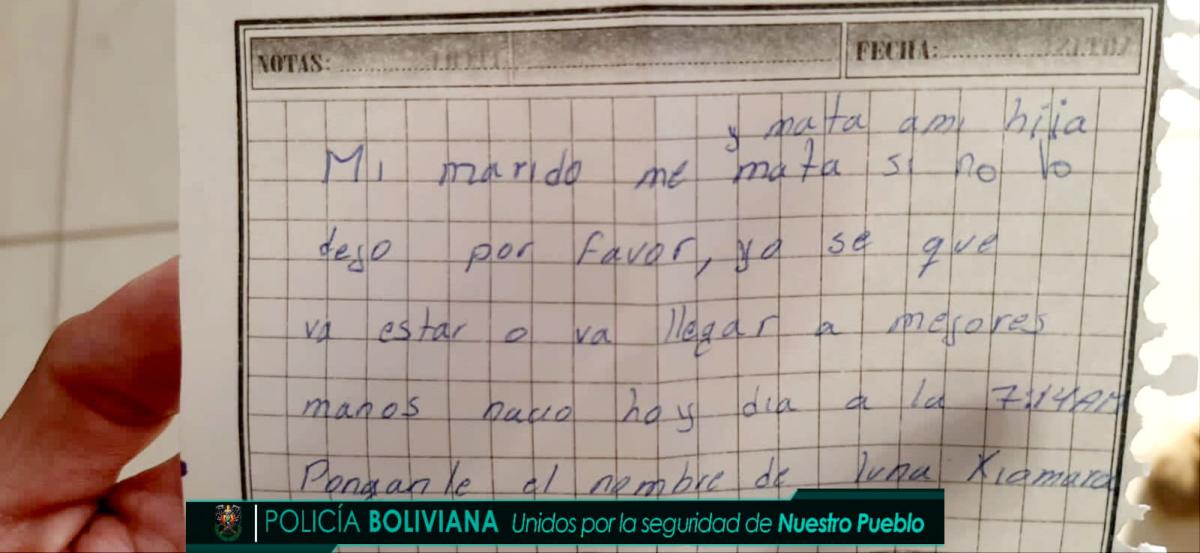 NOTAS: FECHA:
y mata ami hija
Mi marido me mata si no lo
dejo por favor, yo se que
va estar o va llegar a mejores
manos nacio hoy dia a la 7:14AM
Pongan le el nombre de luna Xiamara
POLICÍA BOLIVIANA Unidos por la seguridad de Nuestro Pueblo